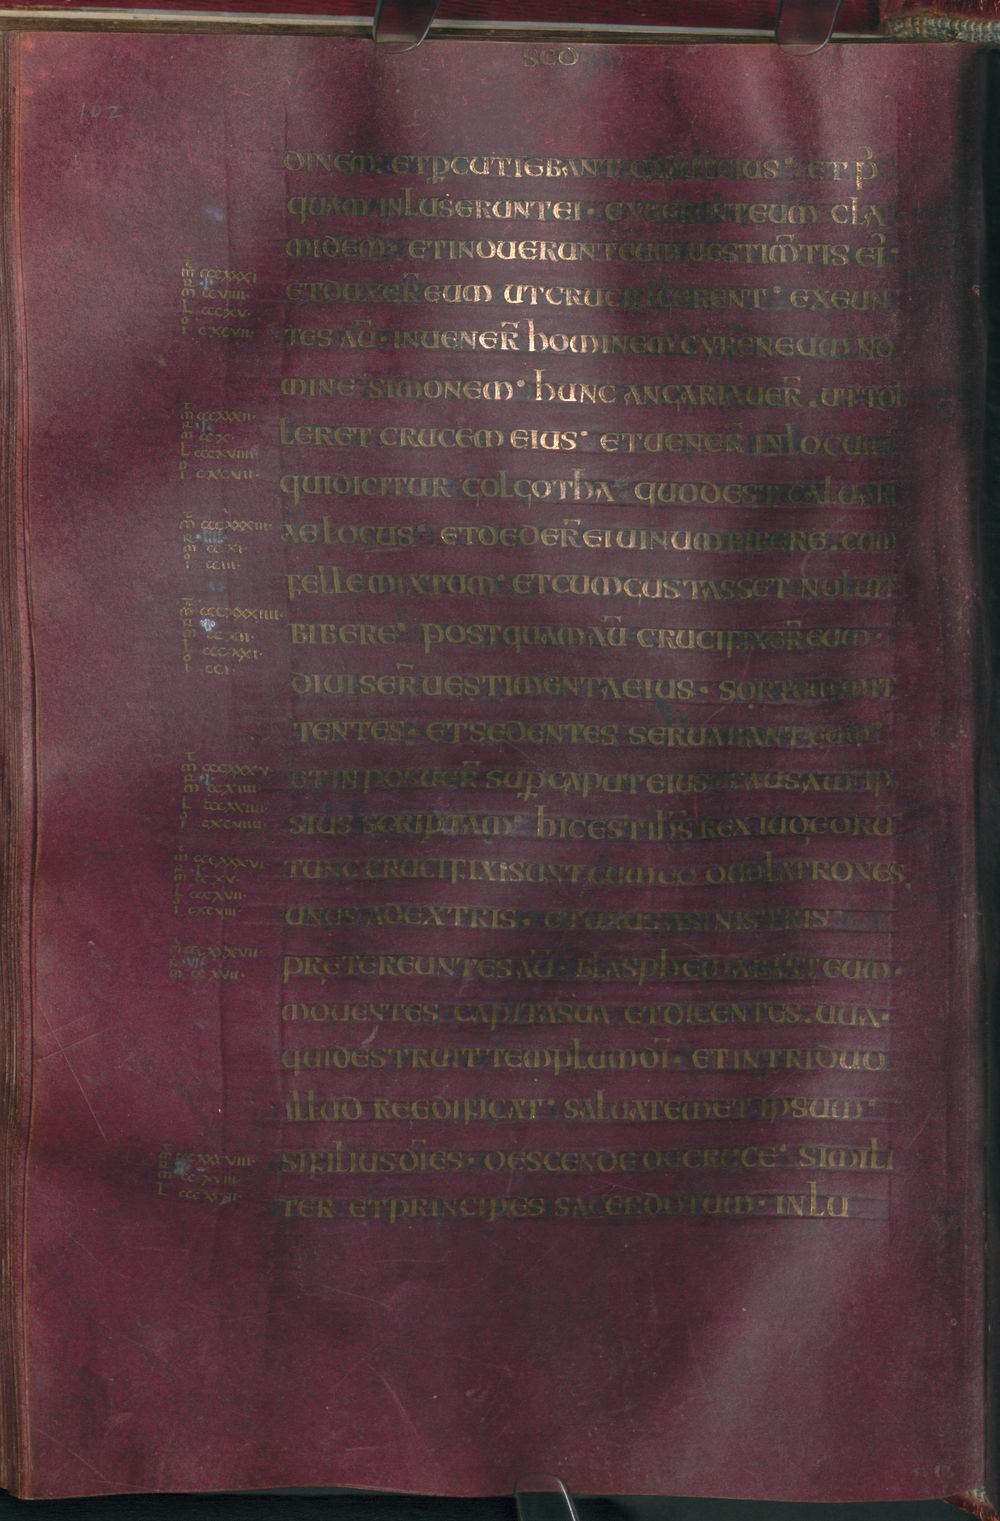 SCD
102
DINEM. ETPCUTIEBANT CAPUT EIUS· ET P̄
QUAM INLUSERUNT EI· EXUERUNT EUM CLA
MIDEM· ET INDUERUNT EUM UESTIM̄TIS EI·
CCCXXXI
CCVIIII
CCCXV
CXCVII
ET DUXER̄ EUM UT CRUCIFIGERENT· EXEUN
TES AŪ· INUENER̄ HOMINEM CYRENEUM NO
MINE SIMONEM· HUNC ANGARIAUER̄. UT TOL
CCCXXXII
CCX
CCCXVIII
CXCVII
LERET CRUCEM EIUS· ET UENER̄ IN LOCUM
QUI DICITUR GOLGOTHA QUOD EST CALUARI
CCCXXXIII
CCXI
CCIII
AE LOCUS· ET DEDER̄ EI UINUM BIBERE. CUM
FELLE MIXTUM· ET CUM GUSTASSET NOLUIT
CCCXXXIIII
CCXII
CCCXXI
CCI
BIBERE· POSTQUAM AŪ CRUCIFIXER̄ EUM·
DIUISER̄ UESTIMENTA EIUS· SORTEM MIT
TENTES· ET SEDENTES SERUABANT EUM·
CCCXXXV
CCXIIII
CCCXXIIII
CXCVIIII
ET INPOSUER̄ SUP CAPUT EIUS CAUSAM IP
SIUS SCRIPTAM· HIC EST IHS REX IUDEORŪ
CCCXXXVI
CCXV
CCCXVII
CXCVIII
TUNC CRUCIFIXI SUNT CUM EO DUO LATRONES
UNUS A DEXTRIS· ET UNUS A SINISTRIS
CCCXXXVII
CCXVII
PRETEREUNTES AŪ· BLASPHEMABANT EUM·
MOUENTES CAPITA SUA ET DICENTES. UUA·
QUI DESTRUIT TEMPLUM DĪ· ET IN TRIDUO
ILLUD REEDIFICAT· SALUA TEMET IPSUM·
CCCXXXVIII
CCXVIII
CCCXXII
SI FILIUS DĪ ES· DESCENDE DE CRUCE· SIMILI
TER ET PRINCIPES SACERDOTUM· INLU